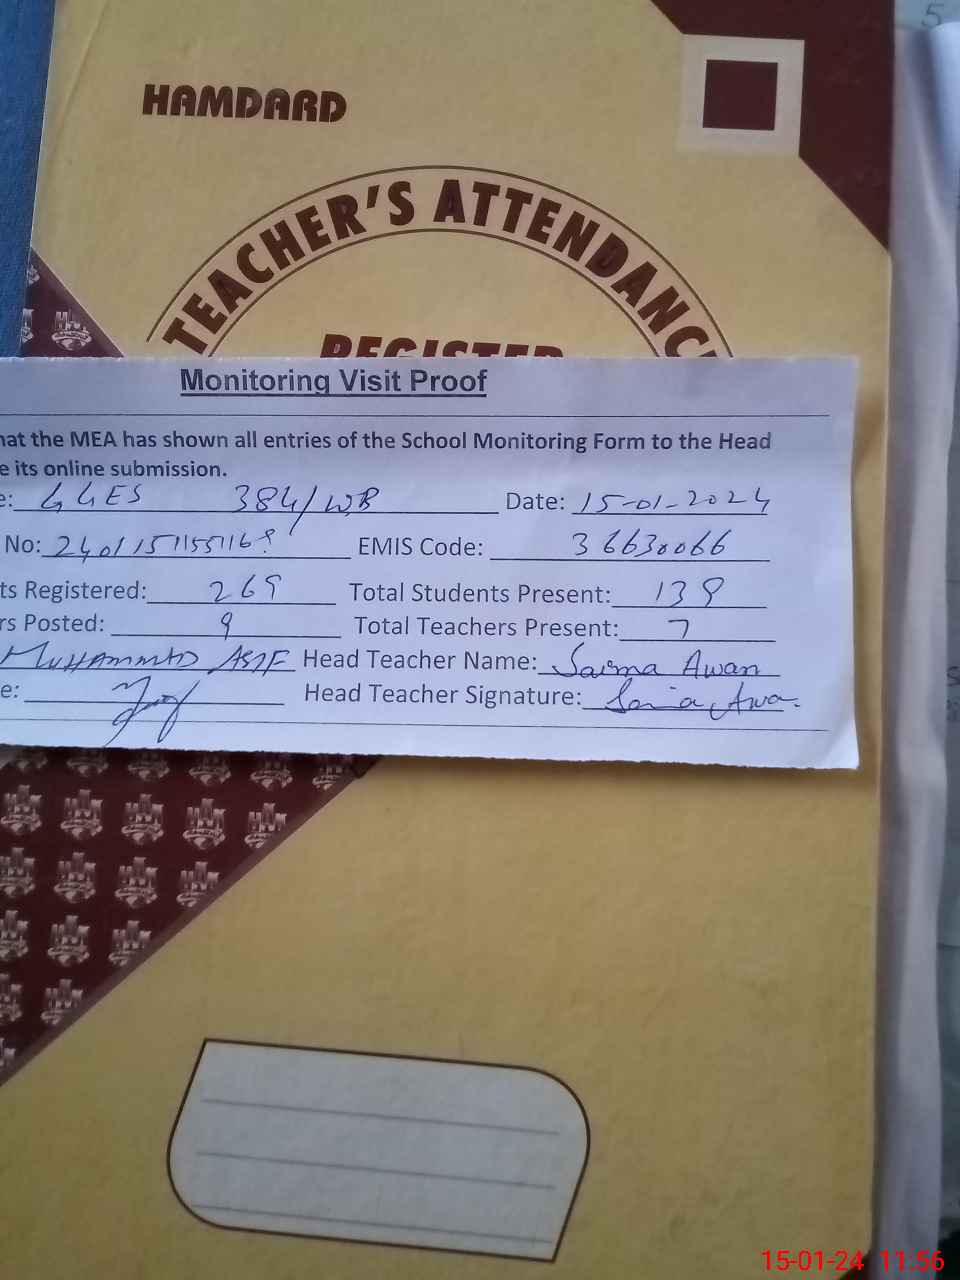 5
HAMDARD
TEACHER'S ATTENDANC
REGISTER
Monitoring Visit Proof
hat the MEA has shown all entries of the School Monitoring Form to the Head
e its online submission.
e: GGES 384/WB Date: 15-01-2024
No: EMIS Code: 36630066
ts Registered: 269 Total Students Present: 139
rs Posted: 9 Total Teachers Present: 7
MUHAMMAD ASIF Head Teacher Name: Saima Awan
e: Head Teacher Signature:
15-01-24 11:56